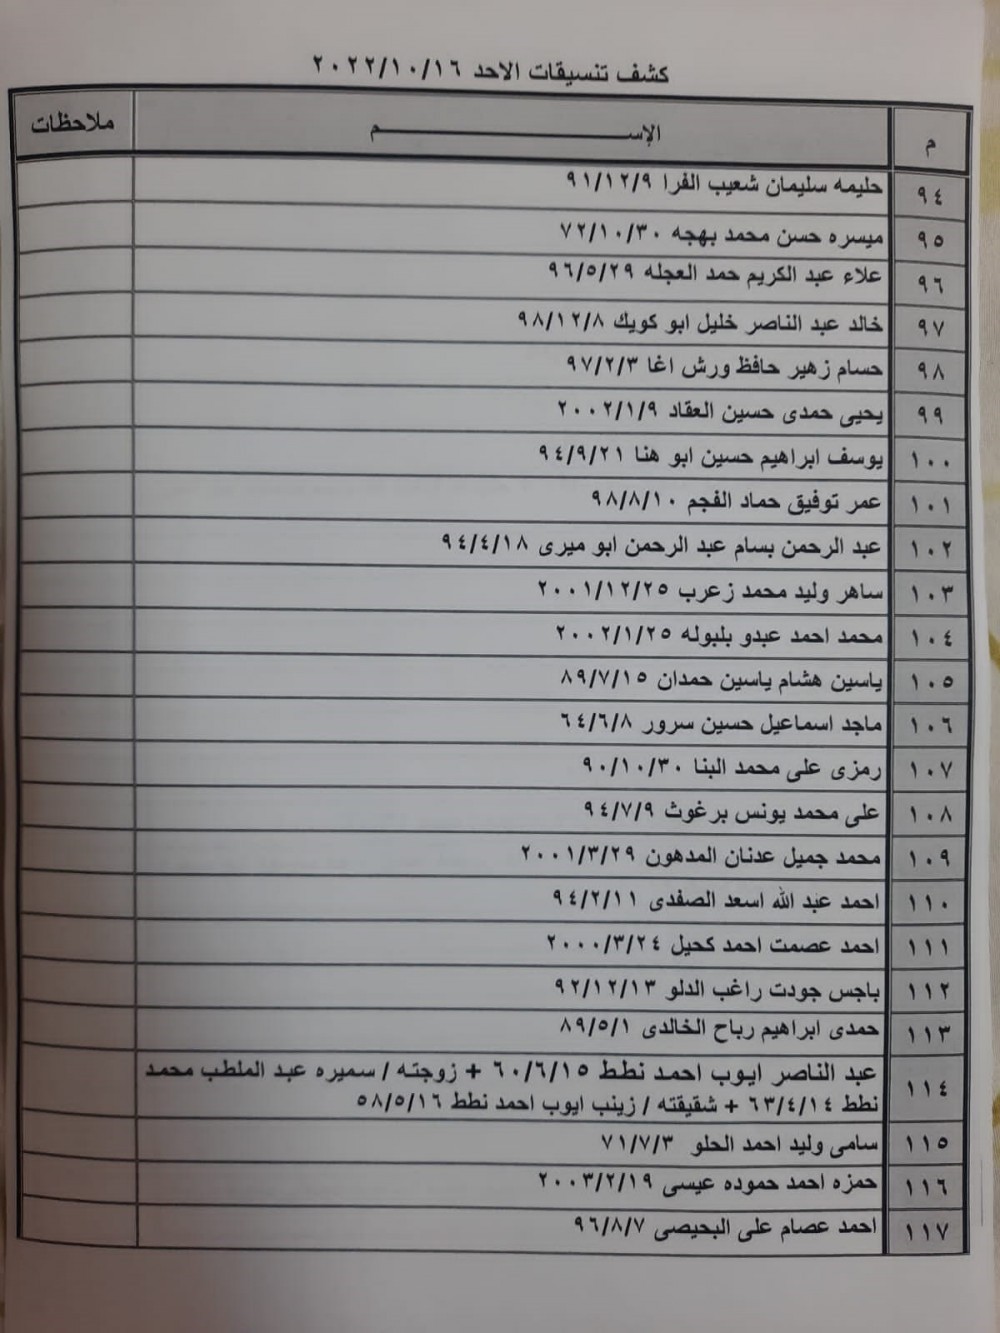 كشف تنسيقات الاحد ٢٠٢٢/١٠/١٦
م الإســـــــــــــــــــم ملاحظات
٩٤ حليمه سليمان شعيب الفرا ٩١/١٢/٩
٩٥ ميسره حسن محمد بهجه ٧٢/١٠/٣٠
٩٦ علاء عبد الكريم حمد العجله ٩٦/٥/٢٩
٩٧ خالد عبد الناصر خليل ابو كويك ٩٨/١٢/٨
٩٨ حسام زهير حافظ ورش اغا ٩٧/٢/٣
٩٩ يحيى حمدى حسين العقاد ٢٠٠٢/١/٩
١٠٠ يوسف ابراهيم حسين ابو هنا ٩٤/٩/٢١
١٠١ عمر توفيق حماد الفجم ٩٨/٨/١٠
١٠٢ عبد الرحمن بسام عبد الرحمن ابو ميرى ٩٤/٤/١٨
١٠٣ ساهر وليد محمد زعرب ٢٠٠١/١٢/٢٥
١٠٤ محمد احمد عبدو بلبوله ٢٠٠٢/١/٢٥
١٠٥ ياسين هشام ياسين حمدان ٨٩/٧/١٥
١٠٦ ماجد اسماعيل حسين سرور ٦٤/٦/٨
١٠٧ رمزى على محمد البنا ٩٠/١٠/٣٠
١٠٨ على محمد يونس برغوث ٩٤/٧/٩
١٠٩ محمد جميل عدنان المدهون ٢٠٠١/٣/٢٩
١١٠ احمد عبد الله اسعد الصفدى ٩٤/٢/١١
١١١ احمد عصمت احمد كحيل ٢٠٠٠/٣/٢٤
١١٢ باجس جودت راغب الدلو ٩٢/١٢/١٣
١١٣ حمدى ابراهيم رباح الخالدى ٨٩/٥/١
١١٤ عبد الناصر ايوب احمد نطط ٦٠/٦/١٥ + زوجته / سميره عبد الملطب محمد
نطط ٦٣/٤/١٤ + شقيقته / زينب ايوب احمد نطط ٥٨/٥/١٦
١١٥ سامى وليد احمد الحلو ٧١/٧/٣
١١٦ حمزه احمد حموده عيسى ٢٠٠٣/٢/١٩
١١٧ احمد عصام على البحيصى ٩٦/٨/٧